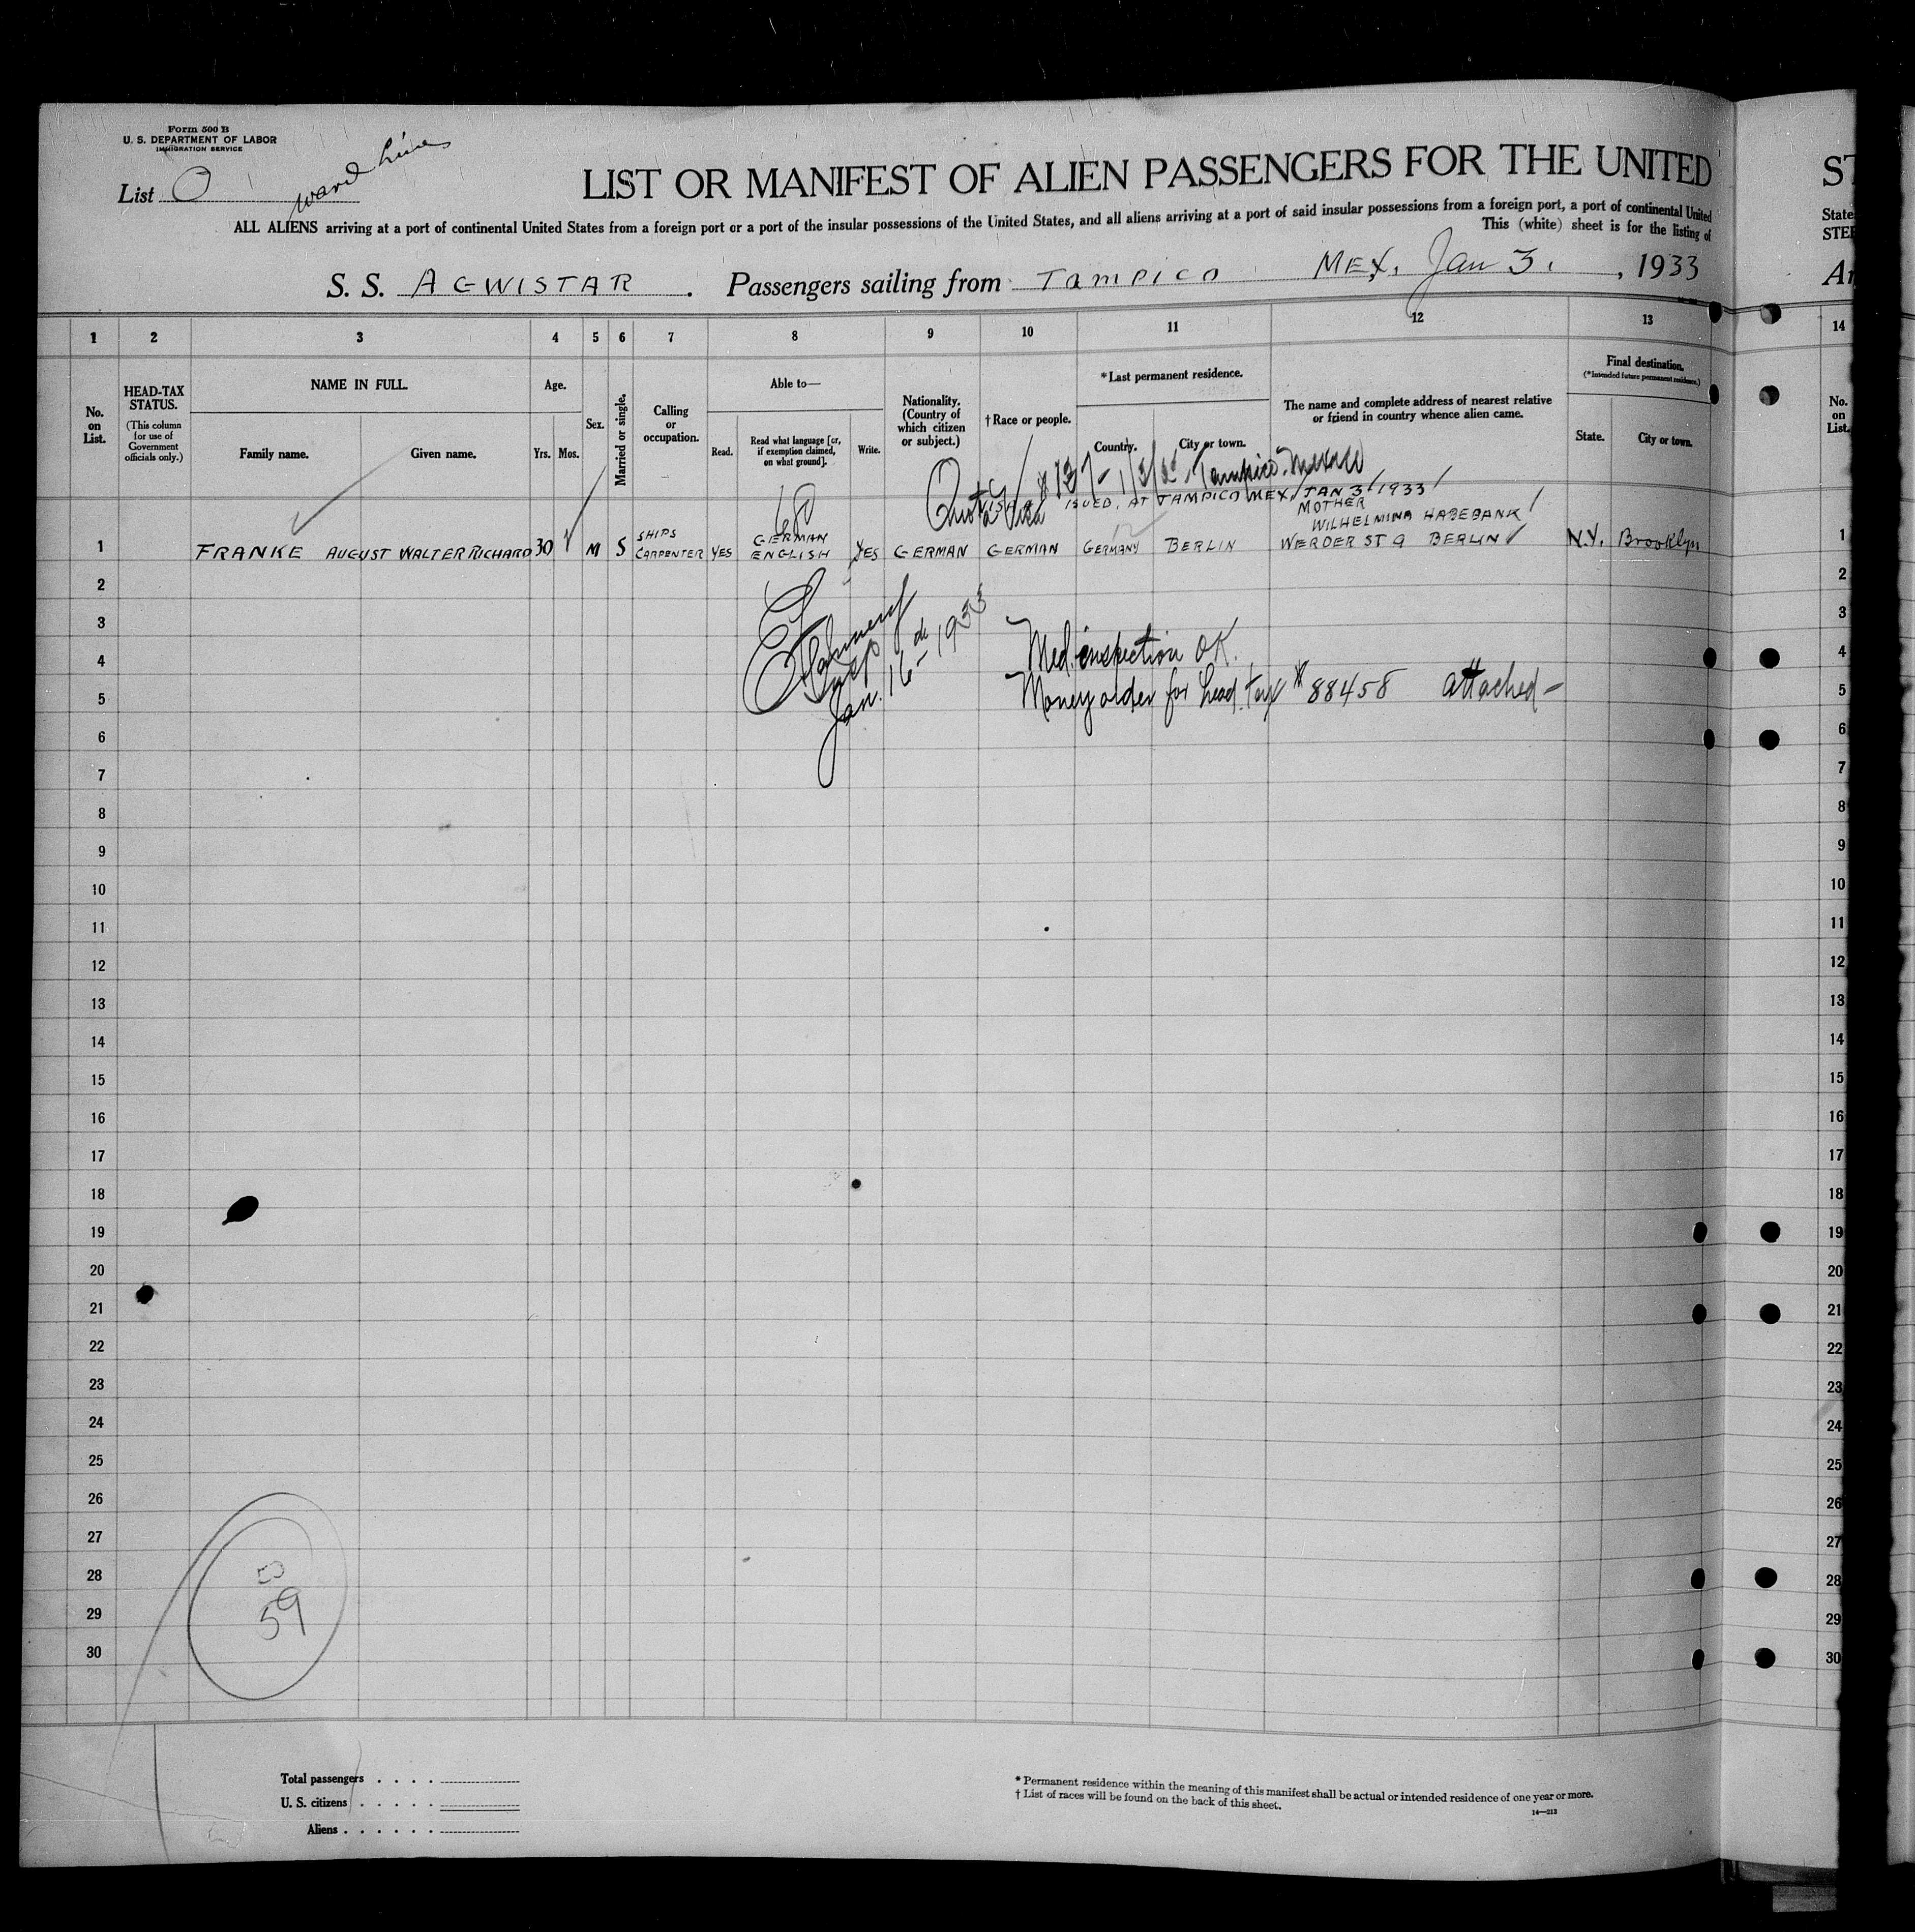 Form 500 B
U. S. DEPARTMENT OF LABOR
IMMIGRATION SERVICE
List O
Ward Line
LIST OR MANIFEST OF ALIEN PASSENGERS FOR THE UNITED
ALL ALIENS arriving at a port of continental United States from a foreign port or a port of the insular possessions of the United States, and all aliens arriving at a port of said insular possessions from a foreign port, a port of continental United
This (white) sheet is for the listing of
S. S. AGWISTAR . Passengers sailing from TAMPICO MEX. Jan 3. , 1933
1 2 3 4 5 6 7 8 9 10 11 12 13
No. on List.
HEAD-TAX STATUS.
(This column for use of Government officials only.)
NAME IN FULL.
Family name. Given name.
Age.
Yrs. Mos.
Sex.
Married or single.
Calling or occupation.
Able to—
Read. Read what language [or, if exemption claimed, on what ground]. Write.
Nationality. (Country of which citizen or subject.)
† Race or people.
* Last permanent residence.
Country. City or town.
The name and complete address of nearest relative or friend in country whence alien came.
Final destination.
(*Intended future permanent residence.)
State. City or town.
Quota Visa #137 Tampico Mexico
ISUED, AT TAMPICO MEX, JAN 3 1933
680
MOTHER
WILHELMINA HABEBANK
1 FRANKE AUGUST WALTER RICHARD 30 M S SHIPS CARPENTER YES GERMAN ENGLISH YES GERMAN GERMAN GERMANY BERLIN WERDER ST 9 BERLIN N.Y. Brooklyn 1
2 2
3 3
Insp
Jan. 16 1933
Med. inspection OK.
4 4
Money order for head tax # 88458 attached -
5 5
6 6
7 7
8 8
9 9
10 10
11 11
12 12
13 13
14 14
15 15
16 16
17 17
18 18
19 19
20 20
21 21
22 22
23 23
24 24
25 25
26 26
27 27
28 28
29 29
30 30
59
Total passengers . . . .
U. S. citizens . . . . .
Aliens . . . . . .
* Permanent residence within the meaning of this manifest shall be actual or intended residence of one year or more.
† List of races will be found on the back of this sheet.
14—213
ST
State
STEE
Ar
14
No. on List.